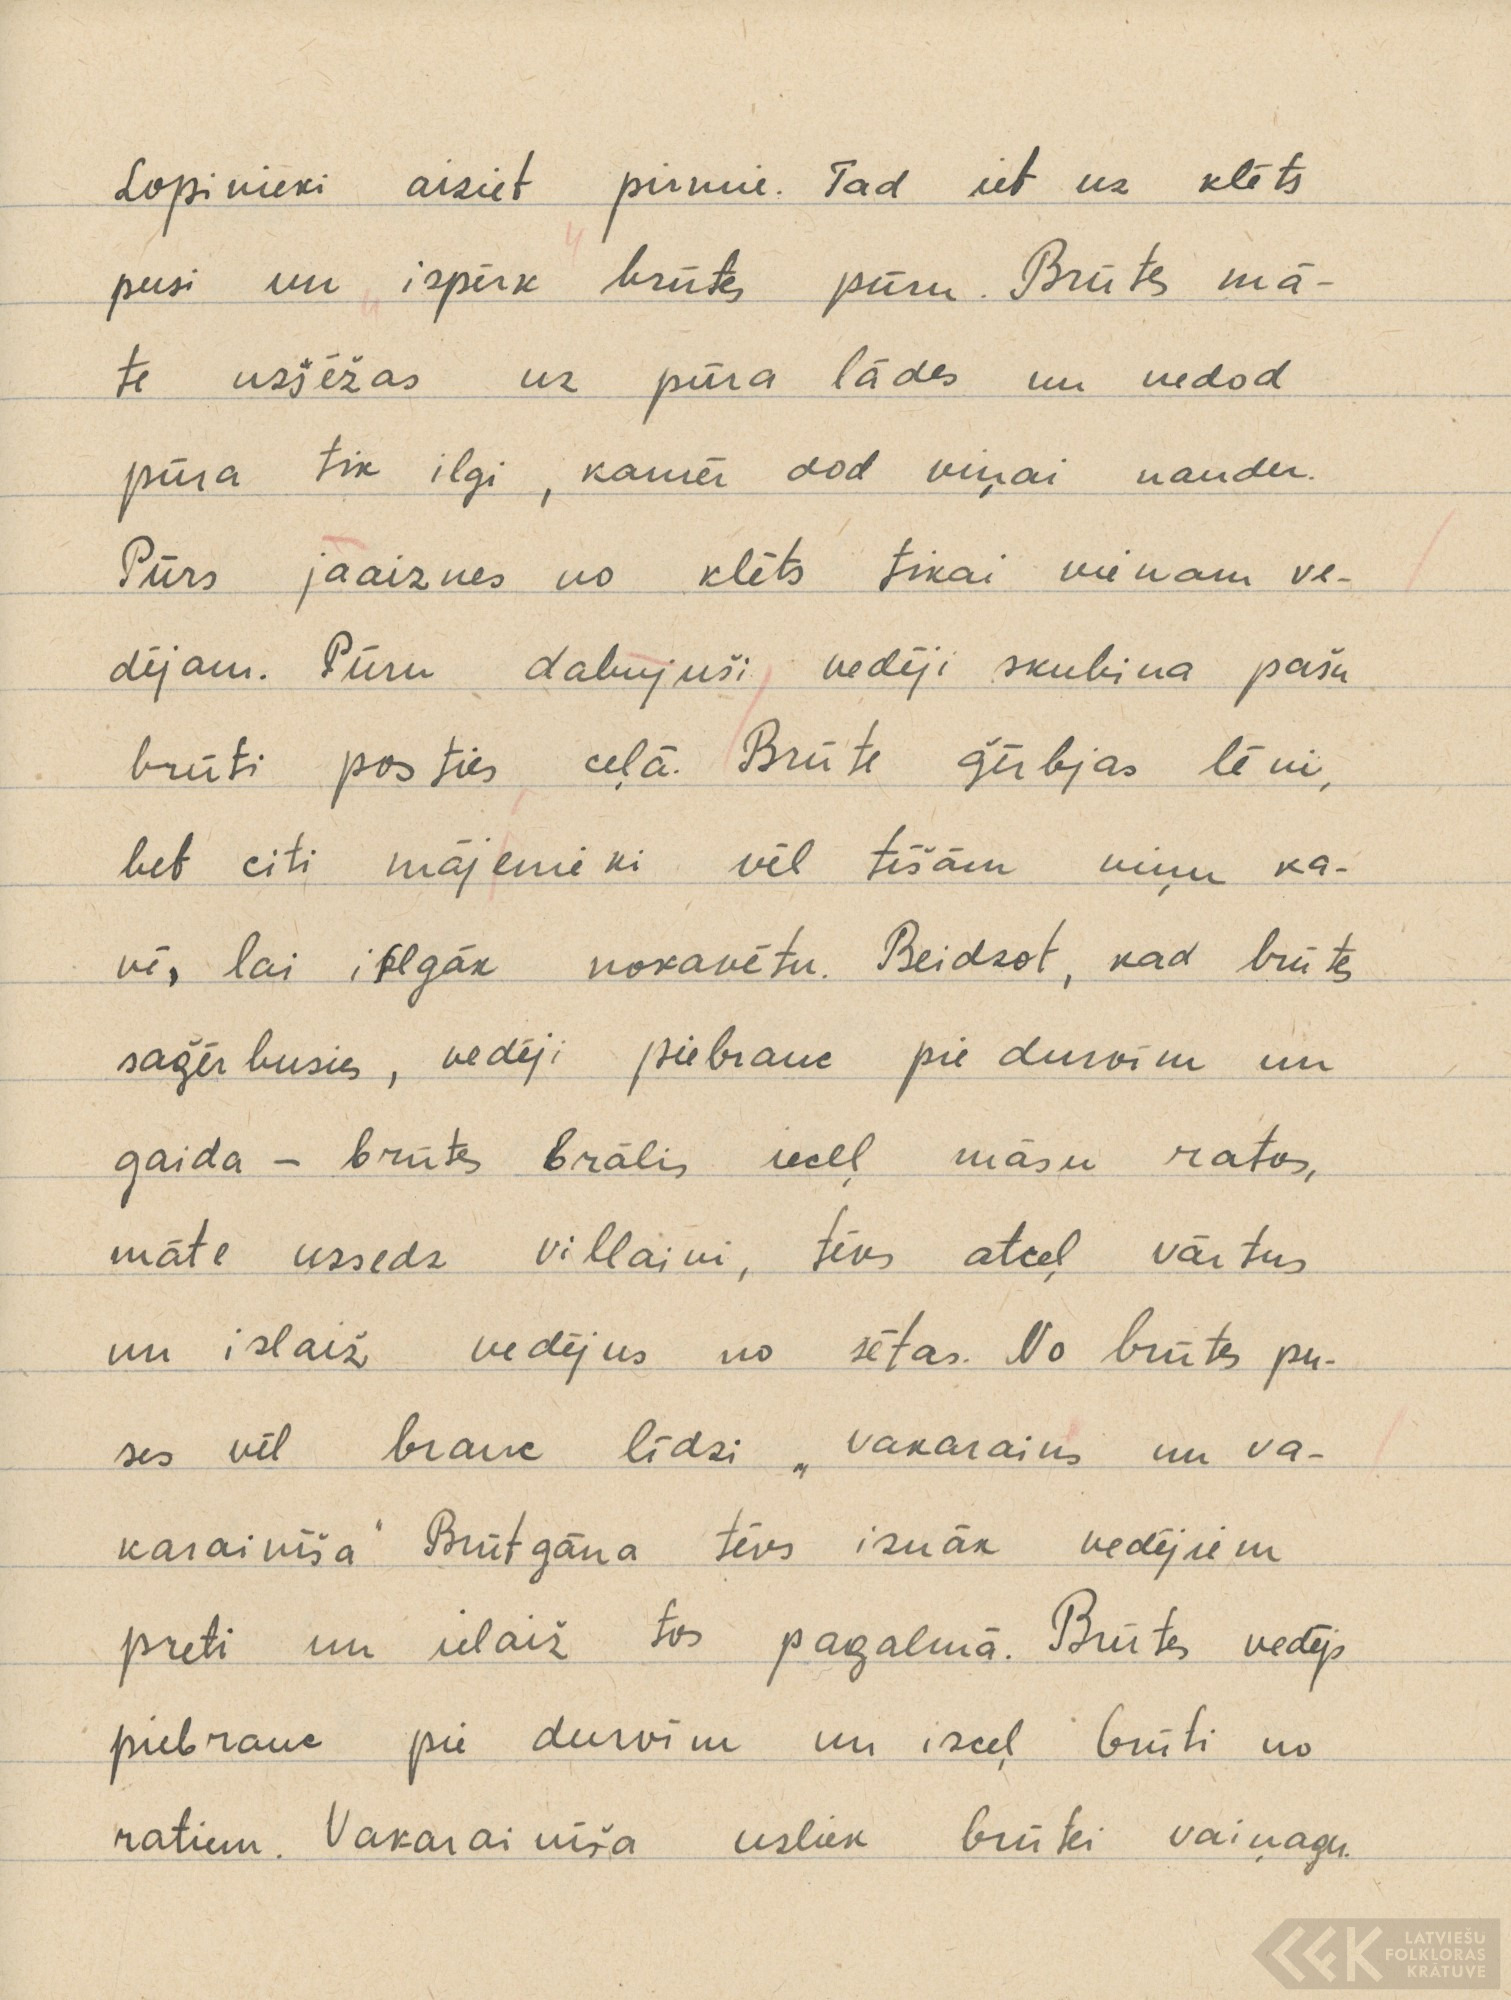 Lopinieki aiziet pirmie. Tad iet uz klēts
pusi un izpērk brūtes pūru. Brūtes mā-
te uzšēžas uz pūra lādes un nedod
pūra tik ilgi, kamēr dod viņai naudu.
Pūrs jāaiznes no klēts tikai vienam ve-
dējam. Pūru dabujuši vedēji skubina pašu
brūti posties ceļā. Brūte ģērbjas lēni,
bet citi mājenieki vēl tīšām viņu ka-
vē, lai ilgāk nokavētu. Beidzot, kad brūtes
saģērbusies, vedēji piebrauc pie durvīm un
gaida – brūtes brālis ieceļ māsu ratos,
māte uzsedz villaini, tēvs atceļ vārtus
un izlaiž vedējus no sētas. No brūtes pu-
ses vēl brauc līdzi „vakarainis un va-
karainīša" Brūtgāna tēvs iznāk vedējiem
preti un ielaiž tos pagalmā. Brūtes vedējs
piebrauc pie durvīm un izceļ brūti no
ratiem. Vakarainīša uzliek brūtei vaiņagu.
LATVIEŠU
FOLKLORAS
KRĀTUVE